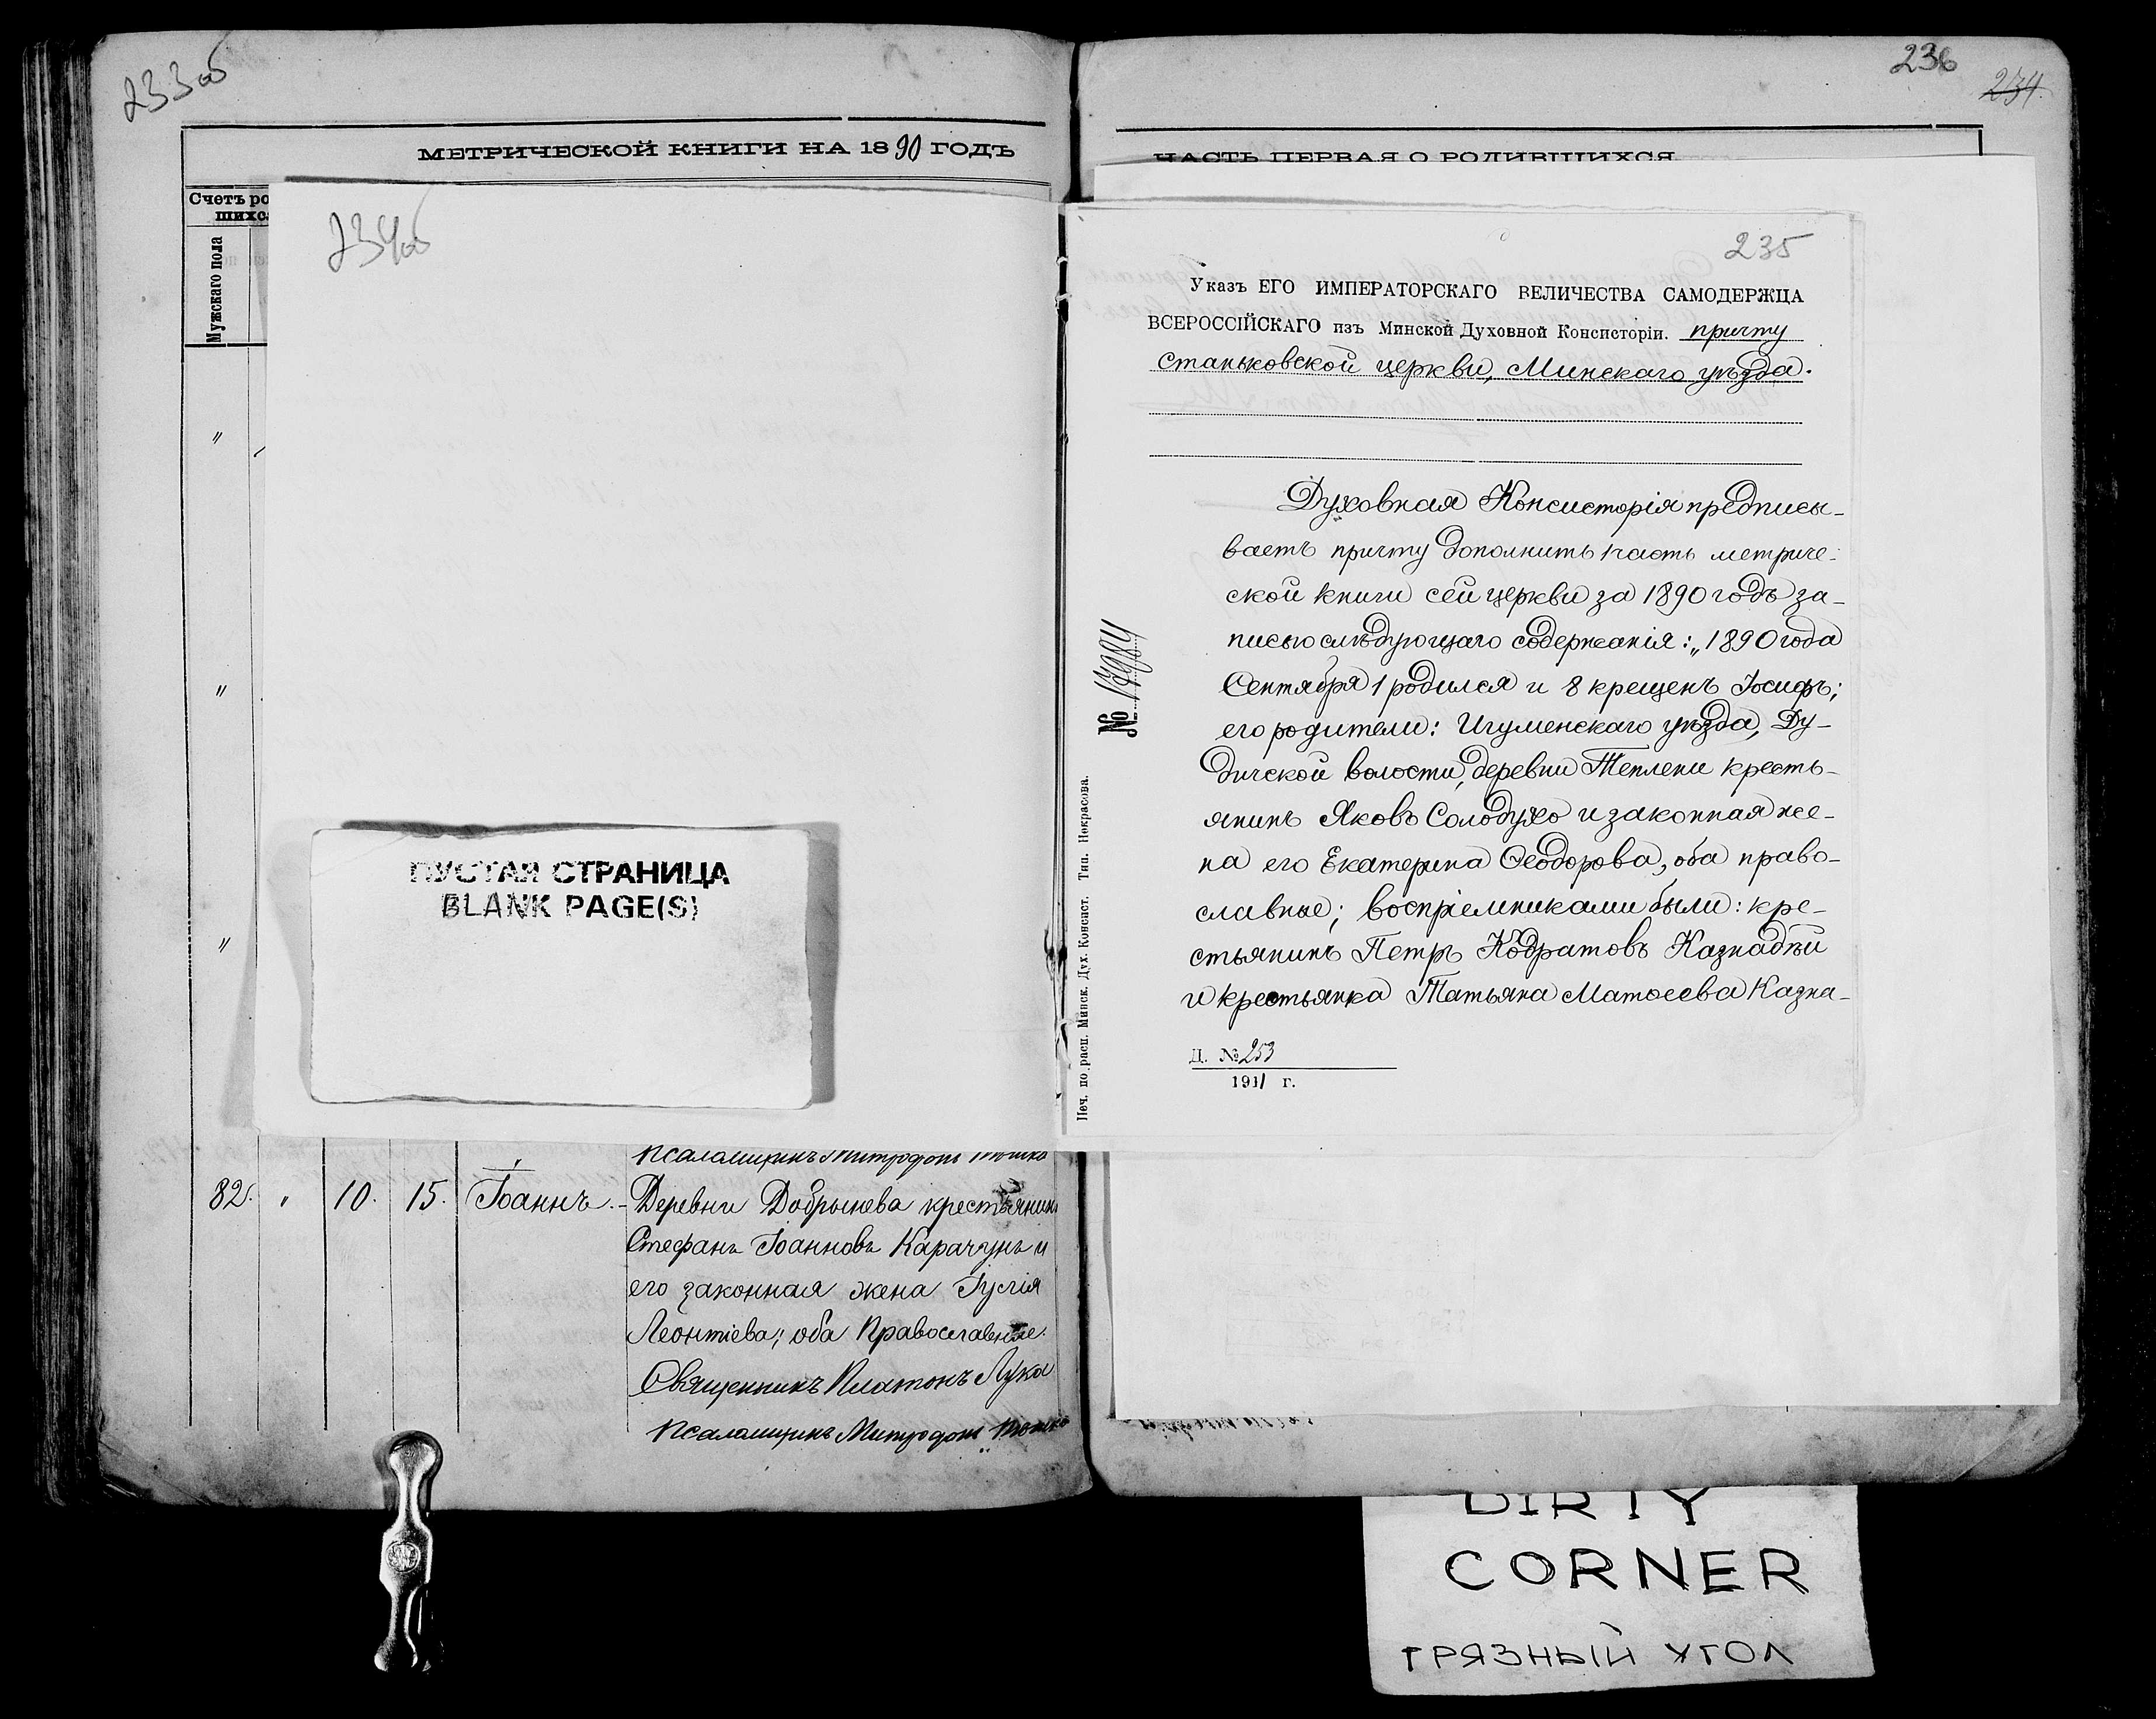 233об
МЕТРИЧЕСКОЙ КНИГИ НА 1890 ГОДЪ
Счетъ ро
шихс
Мужскаго пола
"
"
"
234об
ПУСТАЯ СТРАНИЦА
BLANK PAGE(S)
Псаломщикъ Митрофанъ
82. " 10. 15. Іоаннъ. - Деревни Добрынева крестьянинъ
Стефанъ Іоанновъ Карачунъ и
его законная жена Іулія
Леонтіева; оба Православные.
Священникъ Платонъ Лука
Псаломщикъ Митрофанъ
236
234
ЧАСТЬ ПЕРВАЯ О РОДИВШИХСЯ
235
Указъ ЕГО ИМПЕРАТОРСКАГО ВЕЛИЧЕСТВА САМОДЕРЖЦА
ВСЕРОССІЙСКАГО изъ Минской Духовной Консисторіи. причту
Станьковской церкви, Минскаго уѣзда.
Духовная Консисторія предписы-
ваетъ причту дополнить 1 часть метриче-
ской книги сей церкви за 1890 годъ за-
писью слѣдующаго содержанія: „1890 года
Сентября 1 родился и 8 крещенъ Іосифъ;
его родители: Игуменскаго уѣзда, Ду-
дичской волости, деревни Теплени кресть-
янинъ Яковъ Солодухо и законная же-
на его Екатерина Ѳеодорова, оба право-
славные; воспріемниками были: кре-
стьянинъ Петръ Кодратовъ Казнадѣй
и крестьянка Татьяна Матѳеева Казна-
№
Печ. по расп. Минск. Дух. Консист. Тип. Некрасова.
Д. № 253
1911 г.
DIRTY
CORNER
ГРЯЗНЫЙ УГОЛ